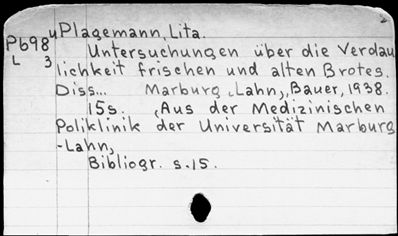 2
uPlagemann, Lita.
P698
L 3
Untersuchungen über die Verdau
lichkeit frischen und alten Brotes.
Diss... Marburg, Lahn, Bauer, 1938.
15s. Aus der Medizinischen
Poliklinik der Universität Marburg
-Lahn,
Bibliogr. s.15.